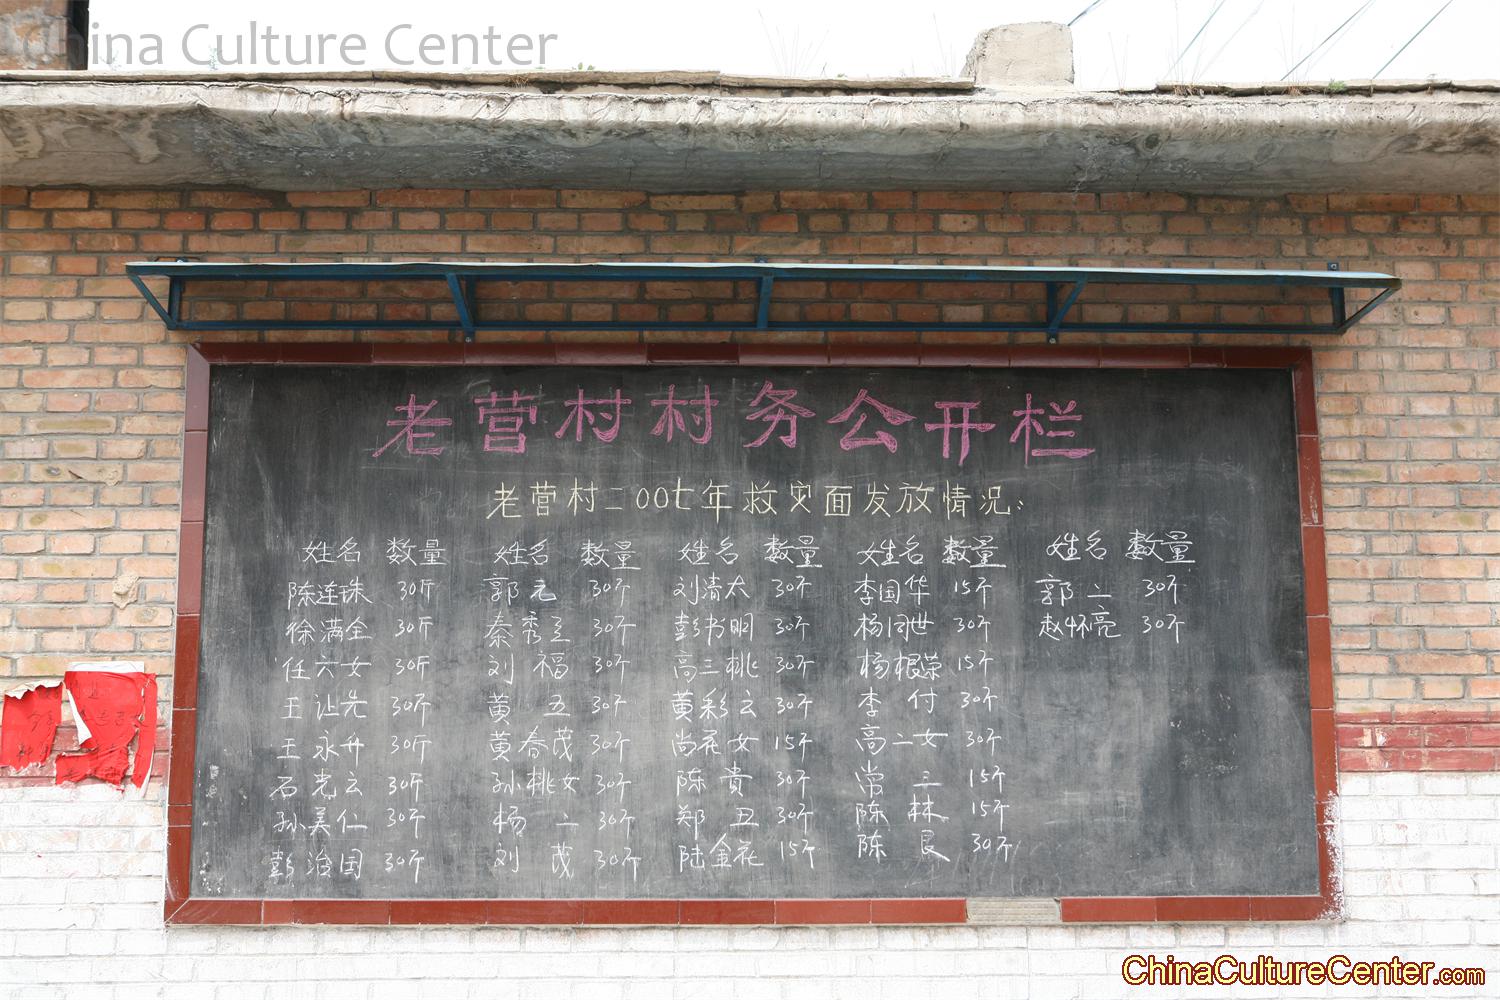 China Culture Center
老营村村务公开栏
老营村二00七年救灾面发放情况:
姓名 数量 姓名 数量 姓名 数量 姓名 数量 姓名 数量
陈连珠 30斤 郭元 30斤 刘清太 30斤 李国华 15斤 郭二 30斤
徐满全 30斤 秦秀兰 30斤 彭书明 30斤 杨同世 30斤 赵怀亮 30斤
任六女 30斤 刘福 30斤 高三桃 30斤 杨根荣 15斤
王让先 30斤 黄五 30斤 黄彩云 30斤 李付 30斤
王永升 30斤 黄春茂 30斤 尚花女 15斤 高二女 30斤
石光云 30斤 孙桃女 30斤 陈贵 30斤 常三 15斤
孙美仁 30斤 杨二 30斤 郑丑 30斤 陈林 15斤
彭治国 30斤 刘茂 30斤 陆金花 15斤 陈艮 30斤
ChinaCultureCenter.com